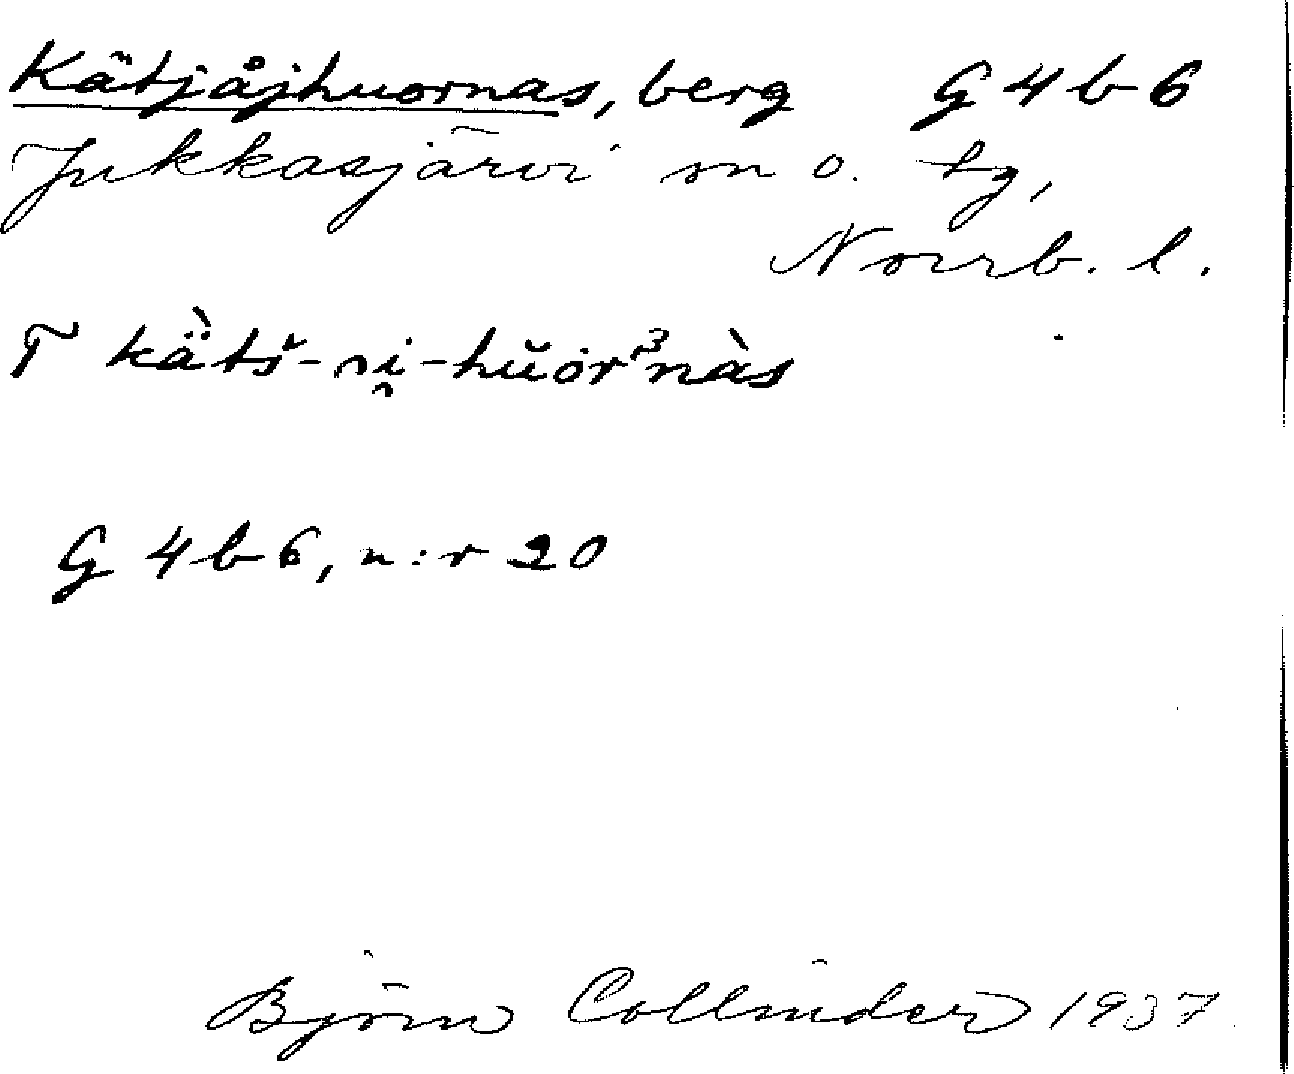 Kätjåjhuornas, berg G 4 b 6
Jukkasjärvi sn o. tg,
Norrb. l.
T
G 4 b 6, n:r 20
Björn Collinder 1937